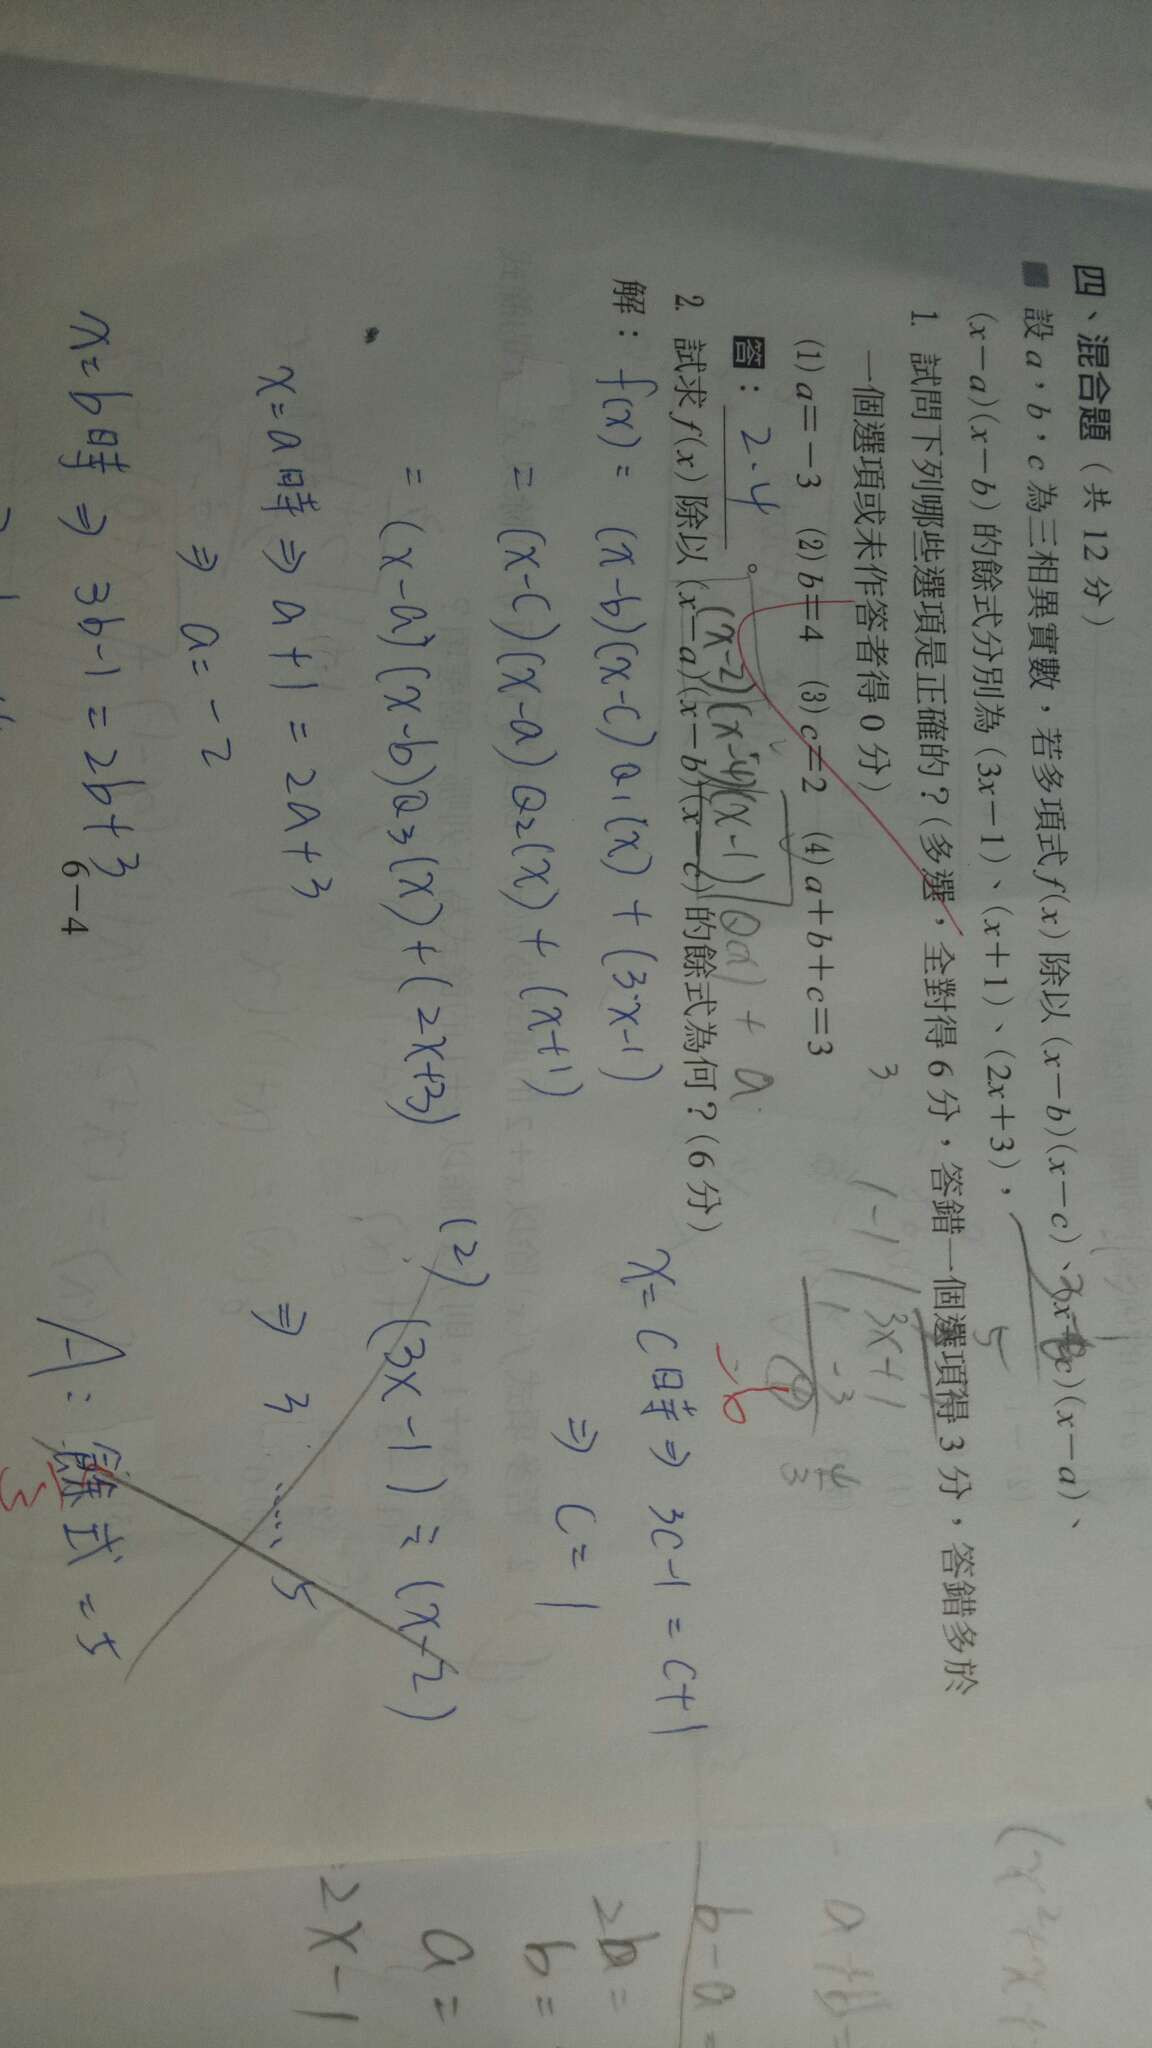 四、混合題（共 12 分）
■ 設 a，b，c 為三相異實數，若多項式 f(x) 除以 (x－b)(x－c)、(x－c)(x－a)、
(x－a)(x－b) 的餘式分別為 (3x－1)、(x＋1)、(2x＋3)，
1. 試問下列哪些選項是正確的？(多選，全對得 6 分，答錯一個選項得 3 分，答錯多於
一個選項或未作答者得 0 分)
(1) a＝－3 (2) b＝4 (3) c＝2 (4) a＋b＋c＝3
3
1-1
3x+1
答：2.4。
(x-2)(x-4)(x-1) Q(x) + a
-6
2. 試求 f(x) 除以 (x－a)(x－b)(x－c) 的餘式為何？(6 分)
解：f(x) = (x-b)(x-c) Q1(x) + (3x-1)
= (x-c)(x-a) Q2(x) + (x+1)
= (x-a)(x-b) Q3(x) + (2x+3)
x=a時 ⇒ a+1 = 2a+3
⇒ a=-2
x=b時 ⇒ 3b-1 = 2b+3
x=c時 ⇒ 3c-1 = c+1
⇒ c=1
(2)
(3x-1) ÷ (x-2)
⇒ 3 ..... 5
A：餘式=5
6－4
(x²+x
a+b=
b-a=
2b=
b=
a=
=2x-1